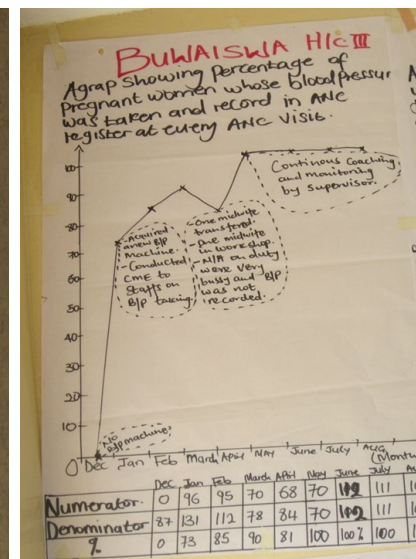 BUWAISWA H/C III
A grap showing percentage of
pregnant women whose blood pressur
was taken and record in ANC
register at every ANC visit.
100
90
80
70
60
50
40
30
20
10
0
Continous Coaching
and monitoring
by supervisor.
- Acquired
a new B/P
Machine.
- Conducted
CME to
Staffs on
B/P taking.
- One midwife
transferred.
- One midwife
in workshop.
- N/A on duty
were very
bussy and B/P
was not
recorded.
No
B/p machine
Dec Jan Feb March April May June July Aug
(Month
Dec Jan Feb March April May June July Au
Numerator 0 96 95 70 68 70 102 111
Denominator 87 131 112 78 84 70 102 111
% 0 73 85 90 81 100 100% 100